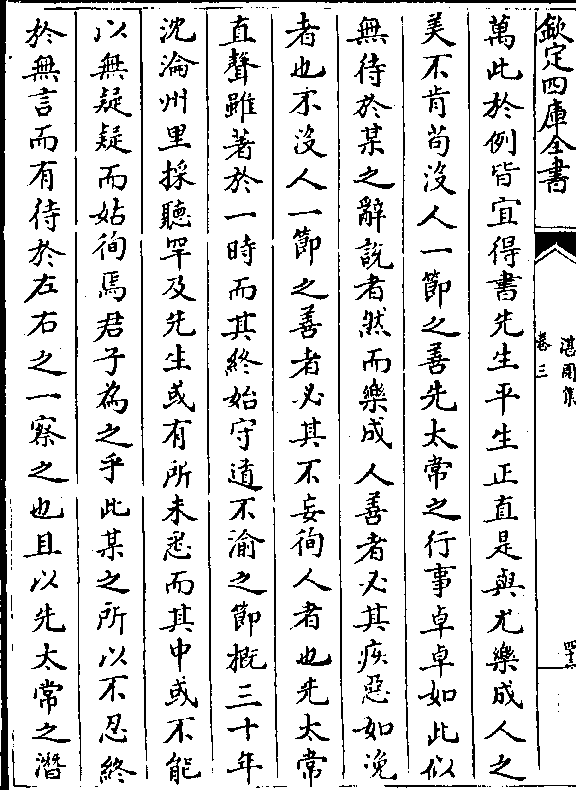 欽定四庫全書
湛園集
卷三
萬此於例皆宜得書先生平生正直是與尤樂成人之
美不肯茍沒人一節之善先太常之行事卓卓如此似
無待於某之辭說者然而樂成人善者必其疾惡如浼
者也不沒人一節之善者必其不妄徇人者也先太常
直聲雖著於一時而其終始守道不渝之節概三十年
沈淪州里採聽罕及先生或有所未悉而其中或不能
以無疑疑而姑徇焉君子為之乎此某之所以不忍終
於無言而有待於左右之一察之也且以先太常之潛